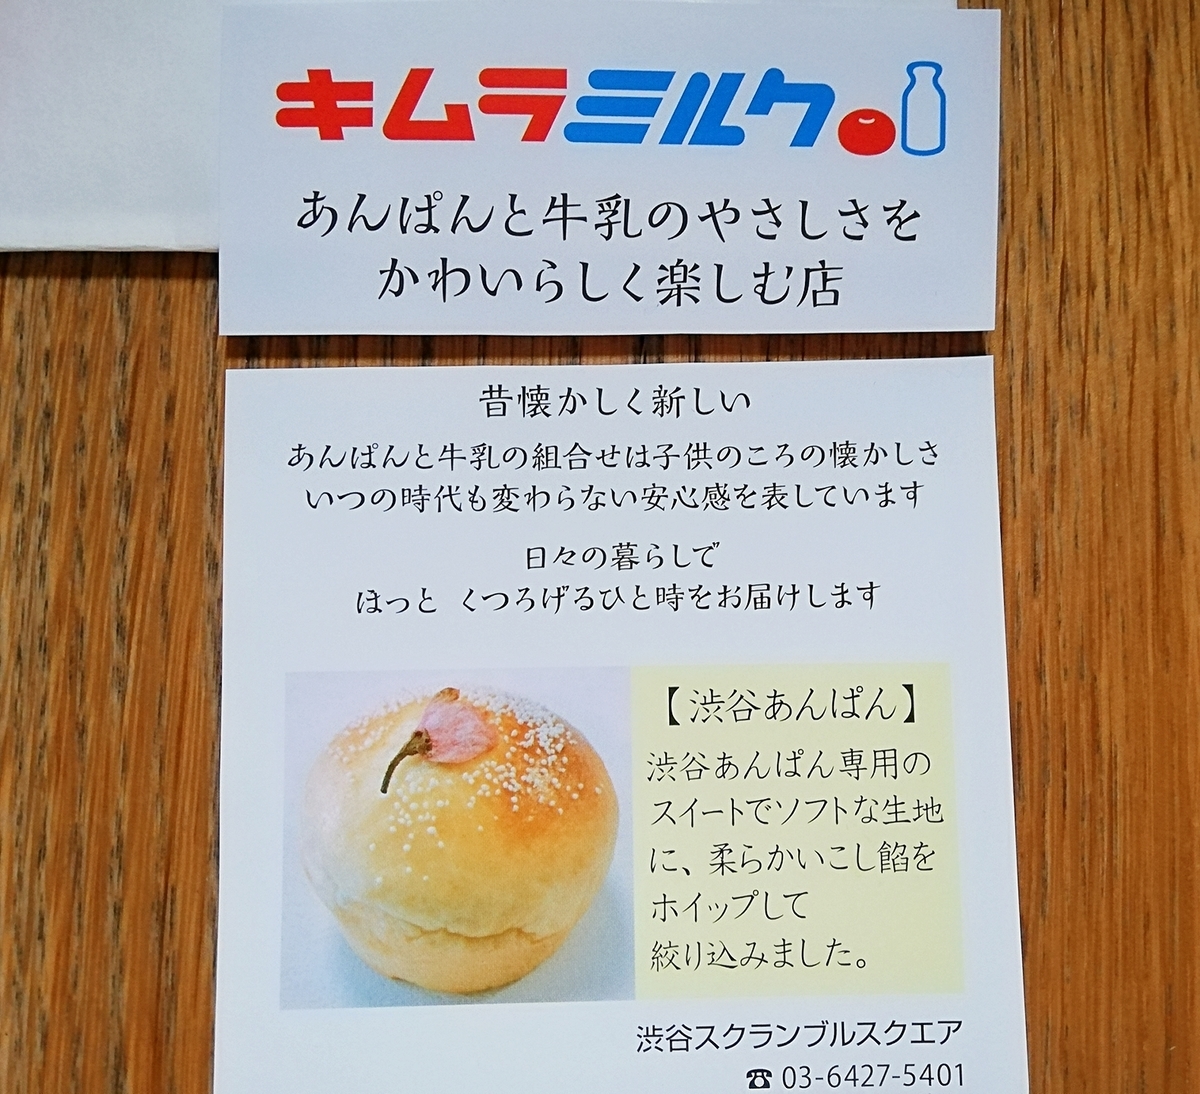 キムラミルク
あんぱんと牛乳のやさしさを
かわいらしく楽しむ店
昔懐かしく新しい
あんぱんと牛乳の組合せは子供のころの懐かしさ
いつの時代も変わらない安心感を表しています
日々の暮らしで
ほっと くつろげるひと時をお届けします
【渋谷あんぱん】
渋谷あんぱん専用の
スイートでソフトな生地
に、柔らかいこし餡を
ホイップして
絞り込みました。
渋谷スクランブルスクエア
☎ 03-6427-5401